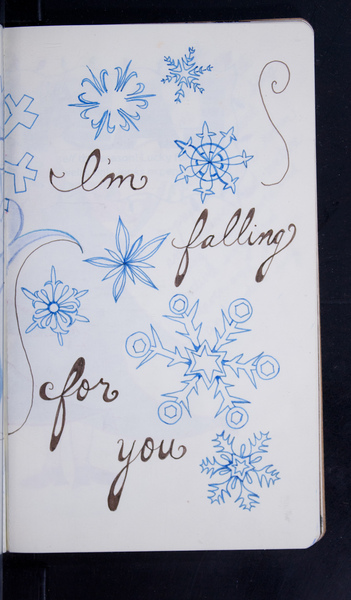 I'm
falling
for
you